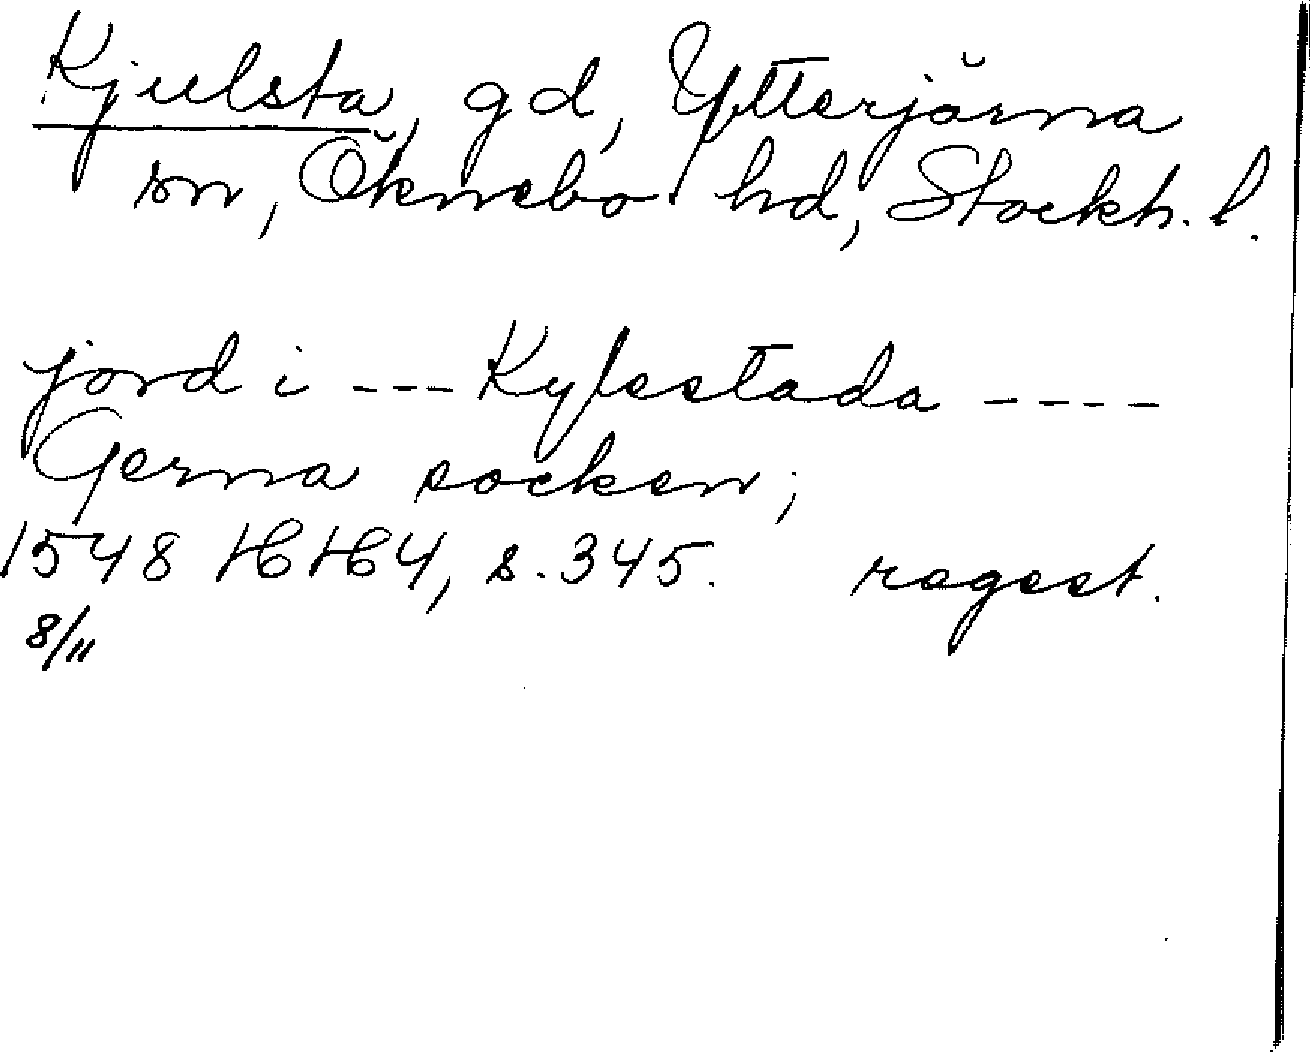 Kjulsta, gd, Ytterjärna
sn, Öknebo hd, Stockh. l.
jord i --- Kylsstada ----
Gerna socken;
1548 HH4, s. 345. regest.
8/11